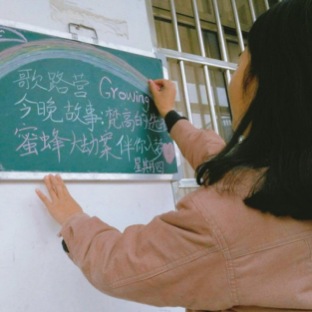 歌路营 Growing
今晚故事:梵高的
蜜蜂大劫案 伴你入梦
星期四